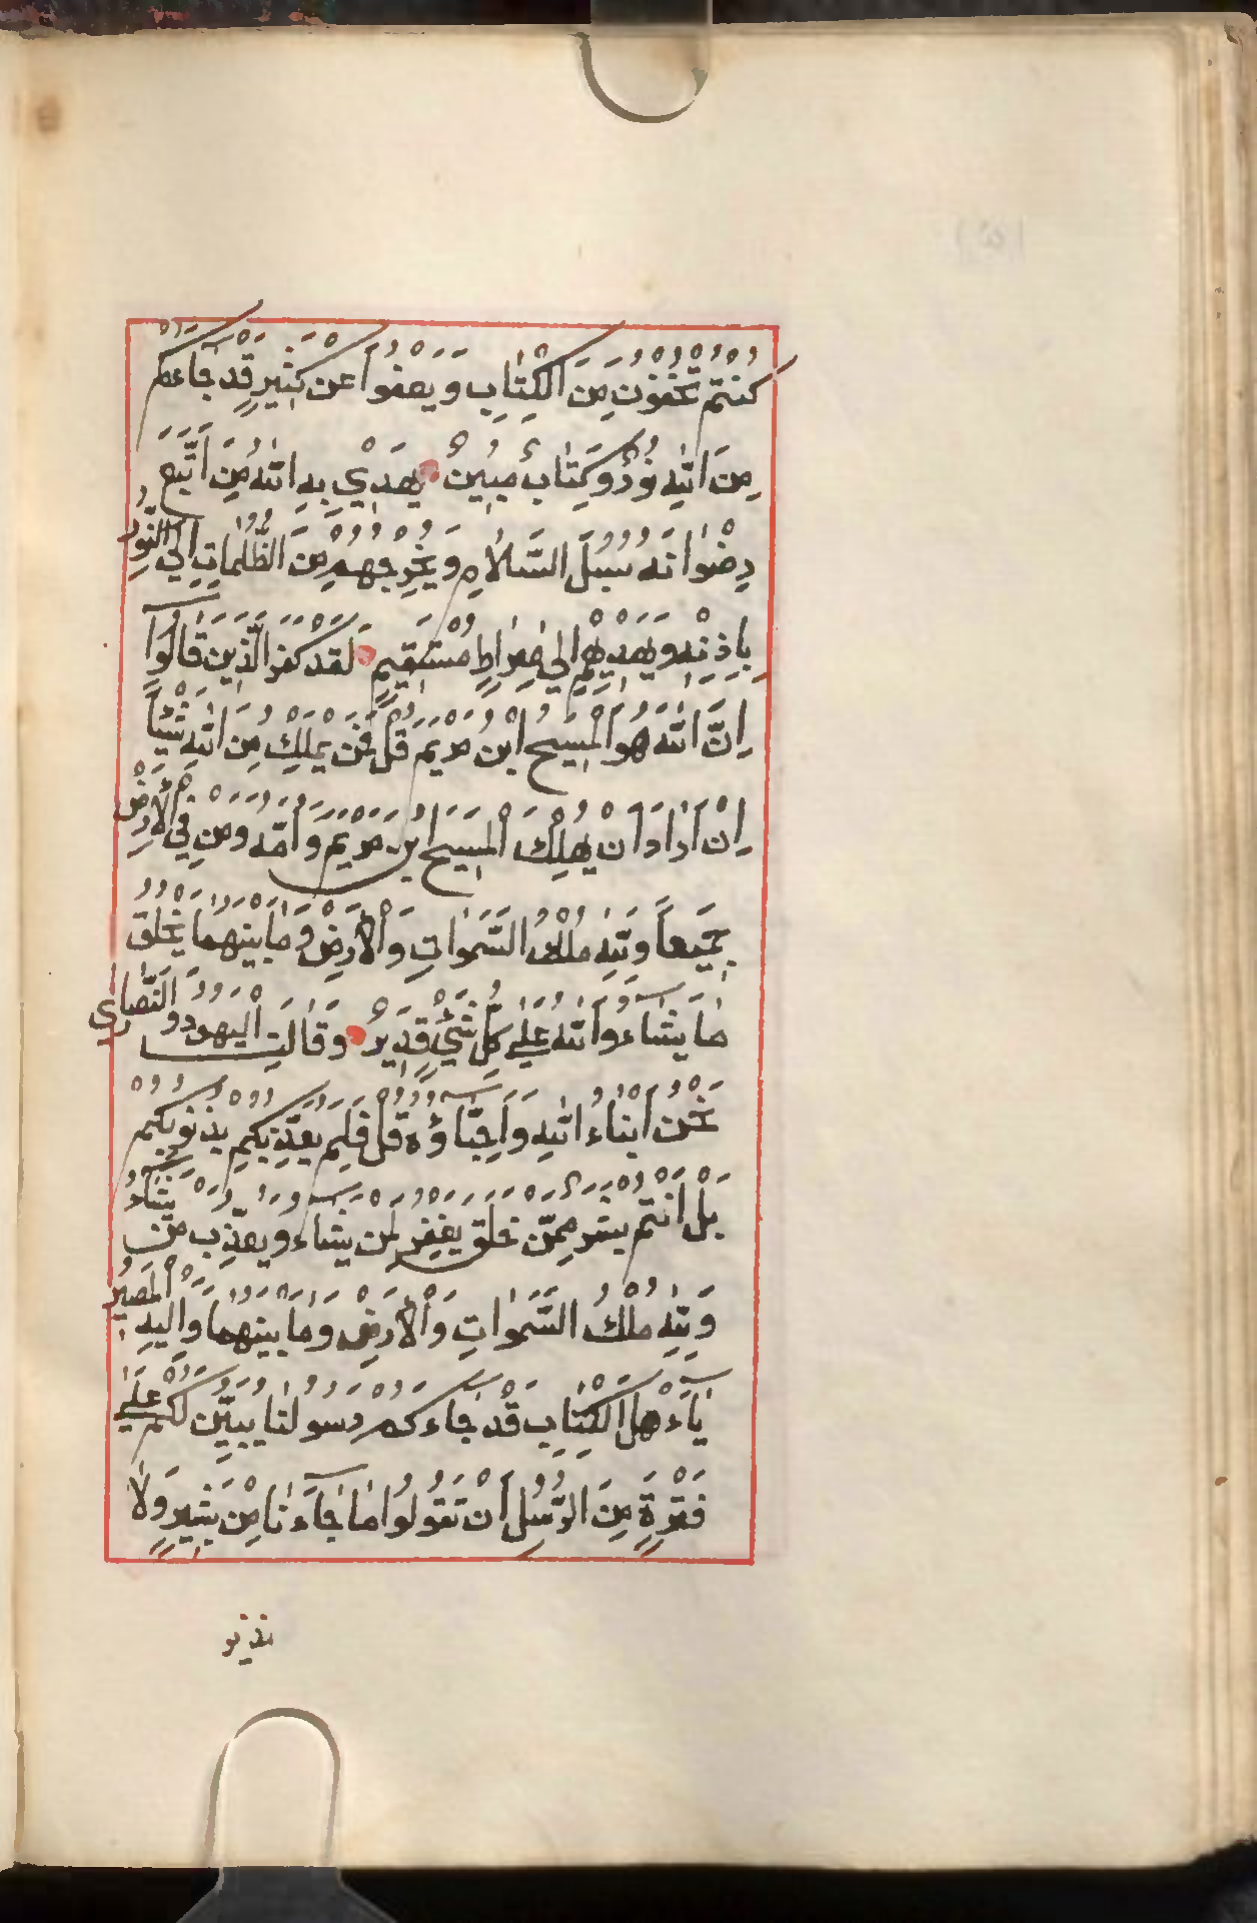 كُنْتُمْ تُخْفُوْنَ مِنَ الْكِتَابِ وَيَعْفُوْا عَنْ كَثِيْرٍ قَدْ جَاءَكُمْ
مِنَ اللهِ نُوْرٌ وَكِتَابٌ مُبِيْنٌ يَهْدِيْ بِهِ اللهُ مَنِ اتَّبَعَ
رِضْوَانَهُ سُبُلَ السَّلَامِ وَيُخْرِجُهُمْ مِنَ الظُّلُمَاتِ اِلَى النُّوْرِ
بِاِذْنِهِ وَيَهْدِيْهِمْ اِلَى صِرَاطٍ مُسْتَقِيْمٍ لَقَدْ كَفَرَ الَّذِيْنَ قَالُوْا
اِنَّ اللهَ هُوَ الْمَسِيْحُ ابْنُ مَرْيَمَ قُلْ فَمَنْ يَمْلِكُ مِنَ اللهِ شَيْئاً
اِنْ اَرَادَ اَنْ يُهْلِكَ الْمَسِيْحَ ابْنَ مَرْيَمَ وَاُمَّهُ وَمَنْ فِي الْاَرْضِ
جَمِيْعاً وَلِلهِ مُلْكُ السَّمَوَاتِ وَالْاَرْضِ وَمَا بَيْنَهُمَا يَخْلُقُ
مَا يَشَاءُ وَاللهُ عَلَى كُلِّ شَيْءٍ قَدِيْرٌ وَقَالَتِ الْيَهُوْدُ وَالنَّصَارَى
نَحْنُ اَبْنَاءُ اللهِ وَاَحِبَّاؤُهُ قُلْ فَلِمَ يُعَذِّبُكُمْ بِذُنُوْبِكُمْ
بَلْ اَنْتُمْ بَشَرٌ مِمَّنْ خَلَقَ يَغْفِرُ لِمَنْ يَشَاءُ وَيُعَذِّبُ مَنْ يَشَاءُ
وَلِلهِ مُلْكُ السَّمَوَاتِ وَالْاَرْضِ وَمَا بَيْنَهُمَا وَاِلَيْهِ الْمَصِيْرُ
يَاءَهْلَ الْكِتَابِ قَدْ جَاءَكُمْ رَسُوْلُنَا يُبَيِّنُ لَكُمْ عَلَى
فَتْرَةٍ مِنَ الرُّسُلِ اَنْ تَقُوْلُوْا مَا جَاءَنَا مِنْ بَشِيْرٍ وَلَا
نذير